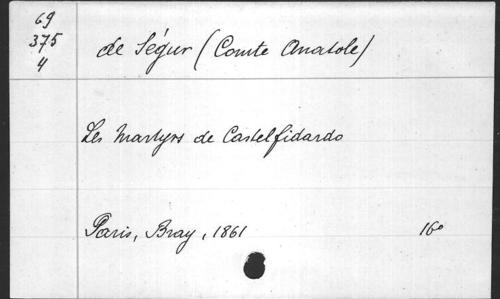 69
375
4
de Ségur (Comte Anatole)
Les Martyrs de Castelfidardo
Paris, Bray, 1861 16º